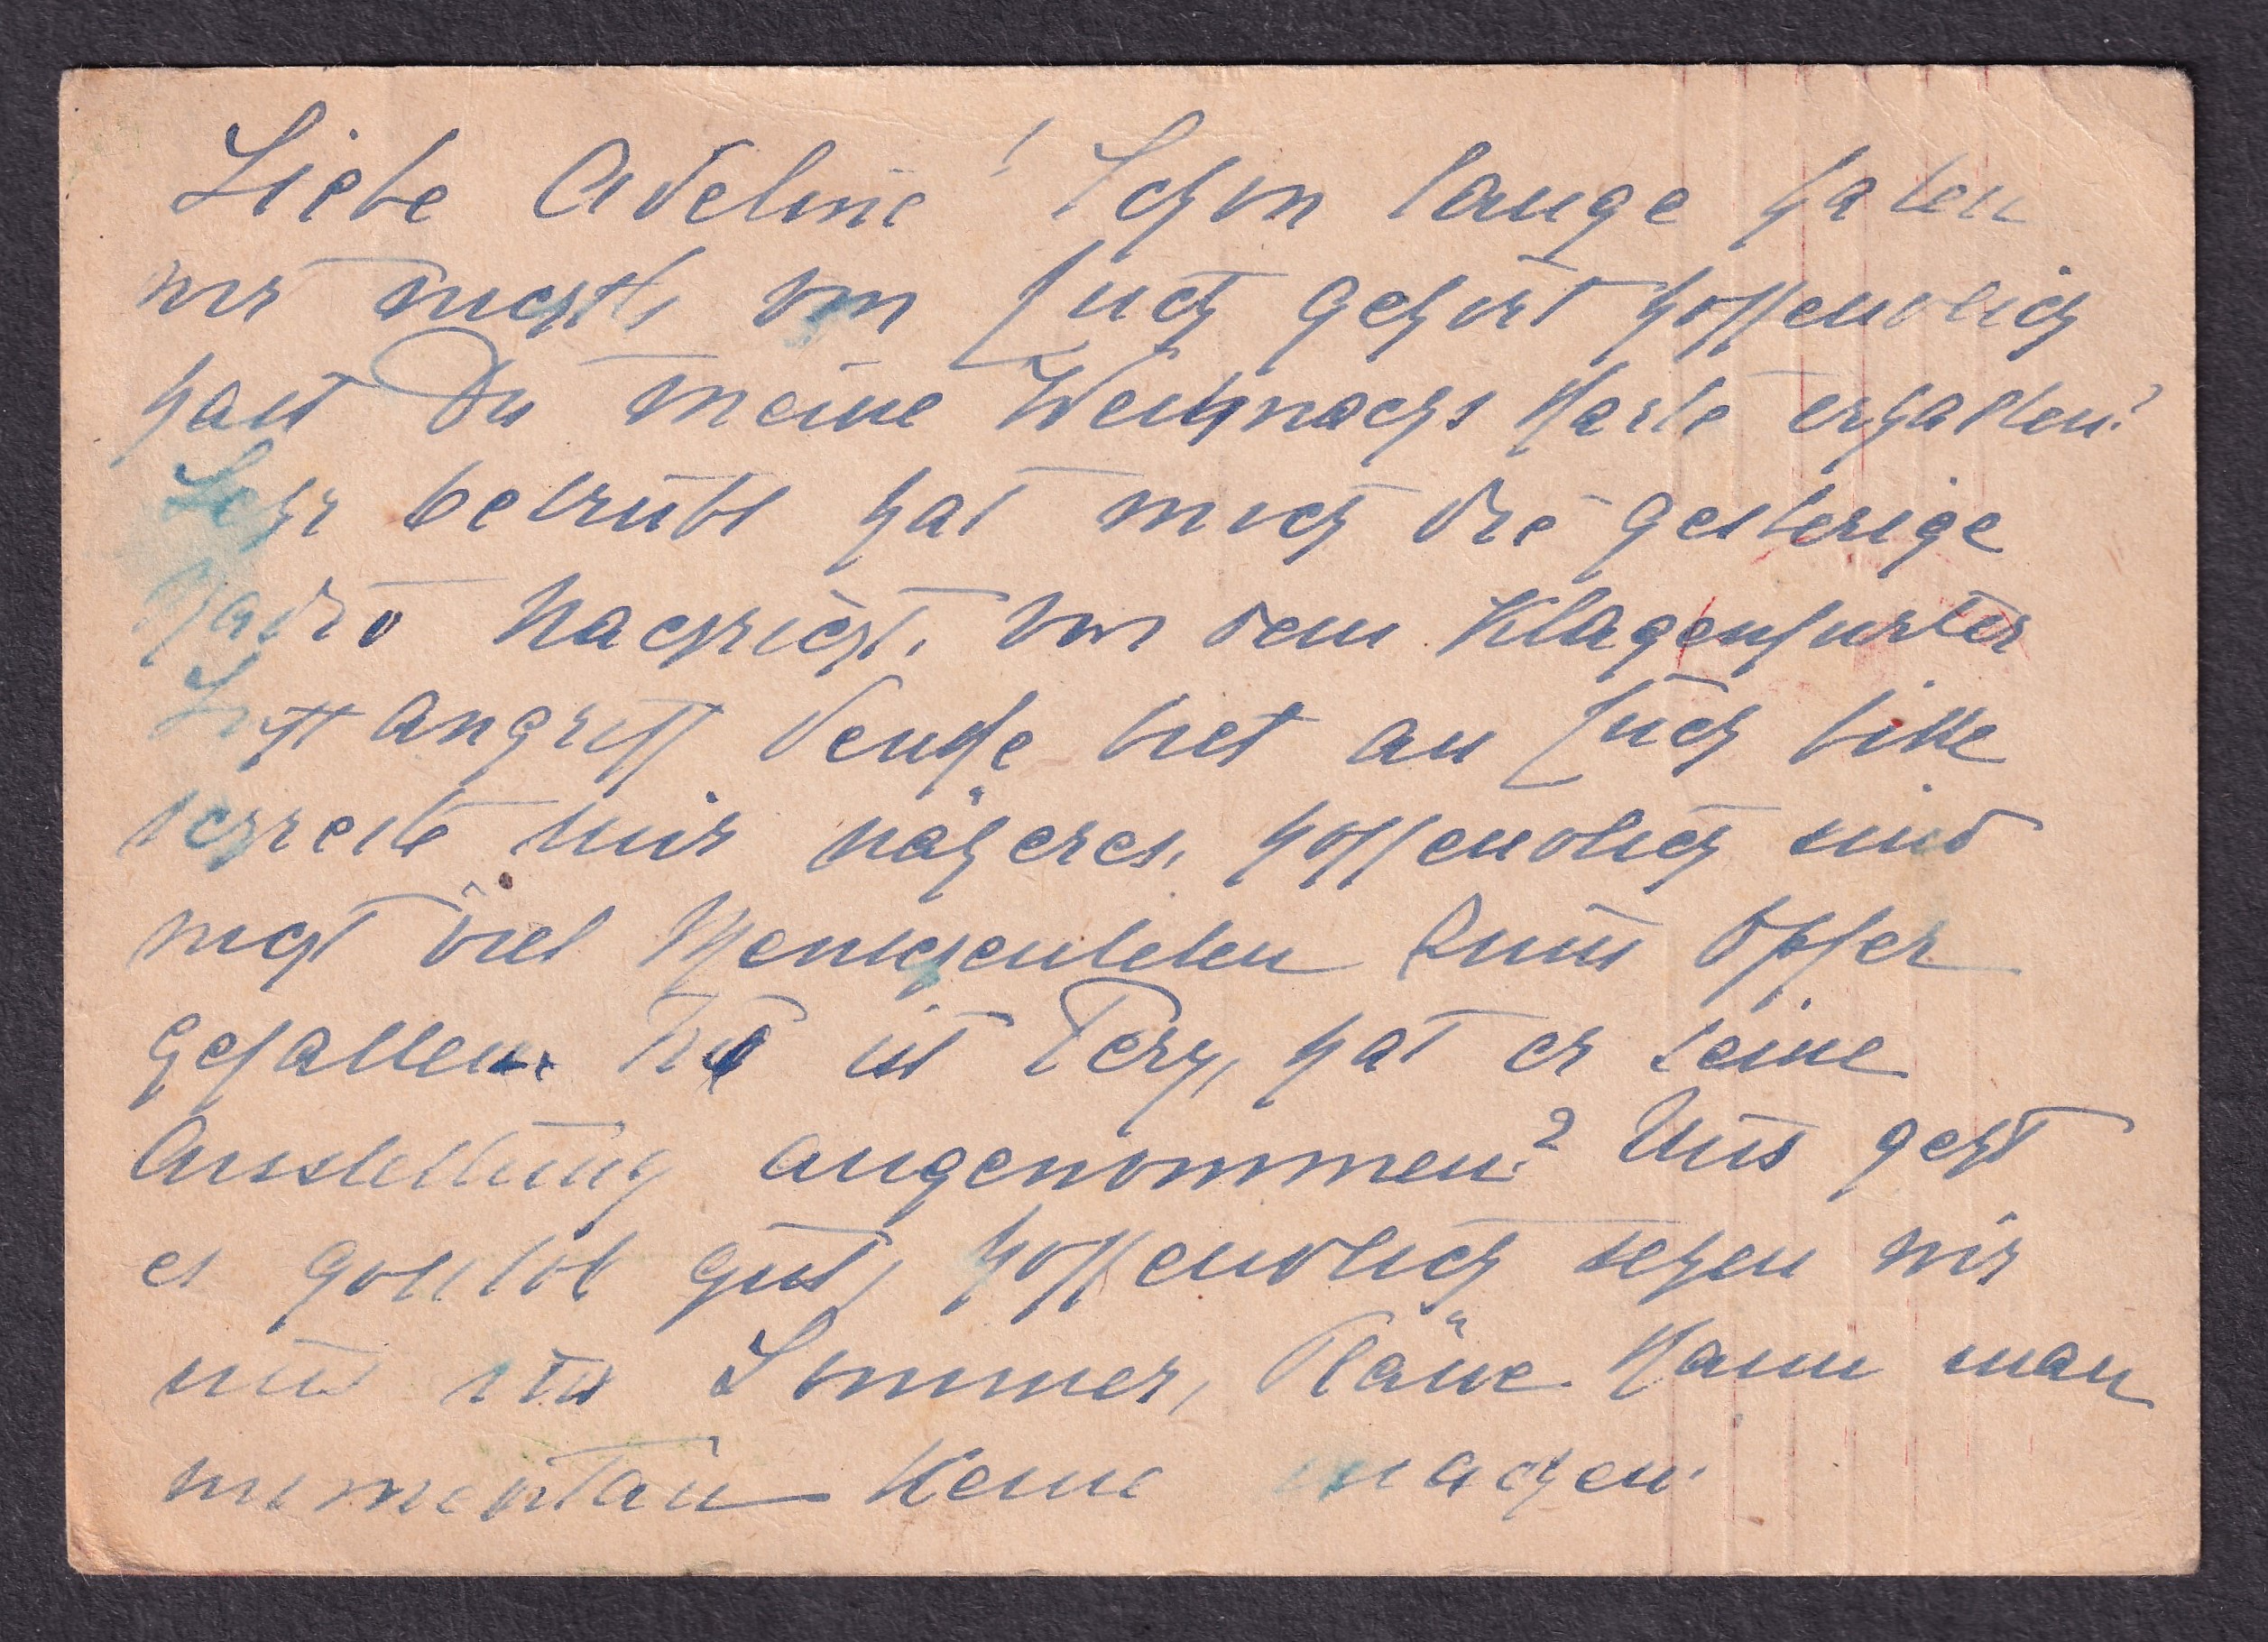 Liebe Adeline! Schon lange haben
wir nichts von Euch gehört hoffendlich
hast Du meine Weihnachs Karte erhalten?
Sehr betrübt hat mich die gesterige
Radio Nachricht, von dem Klagenfurter
Luftangriff denke viel an Euch bitte
schreib mir näheres, hoffendlich sind
nicht viel Menschenleben zum Opfer
gefallen. Wo ist Pery, hat er seine
Ausstellung angenommen? Uns geht
es gottlob gut, hoffendlich sehen wir
uns im Sommer, Pläne kann man
momentan keine machen.